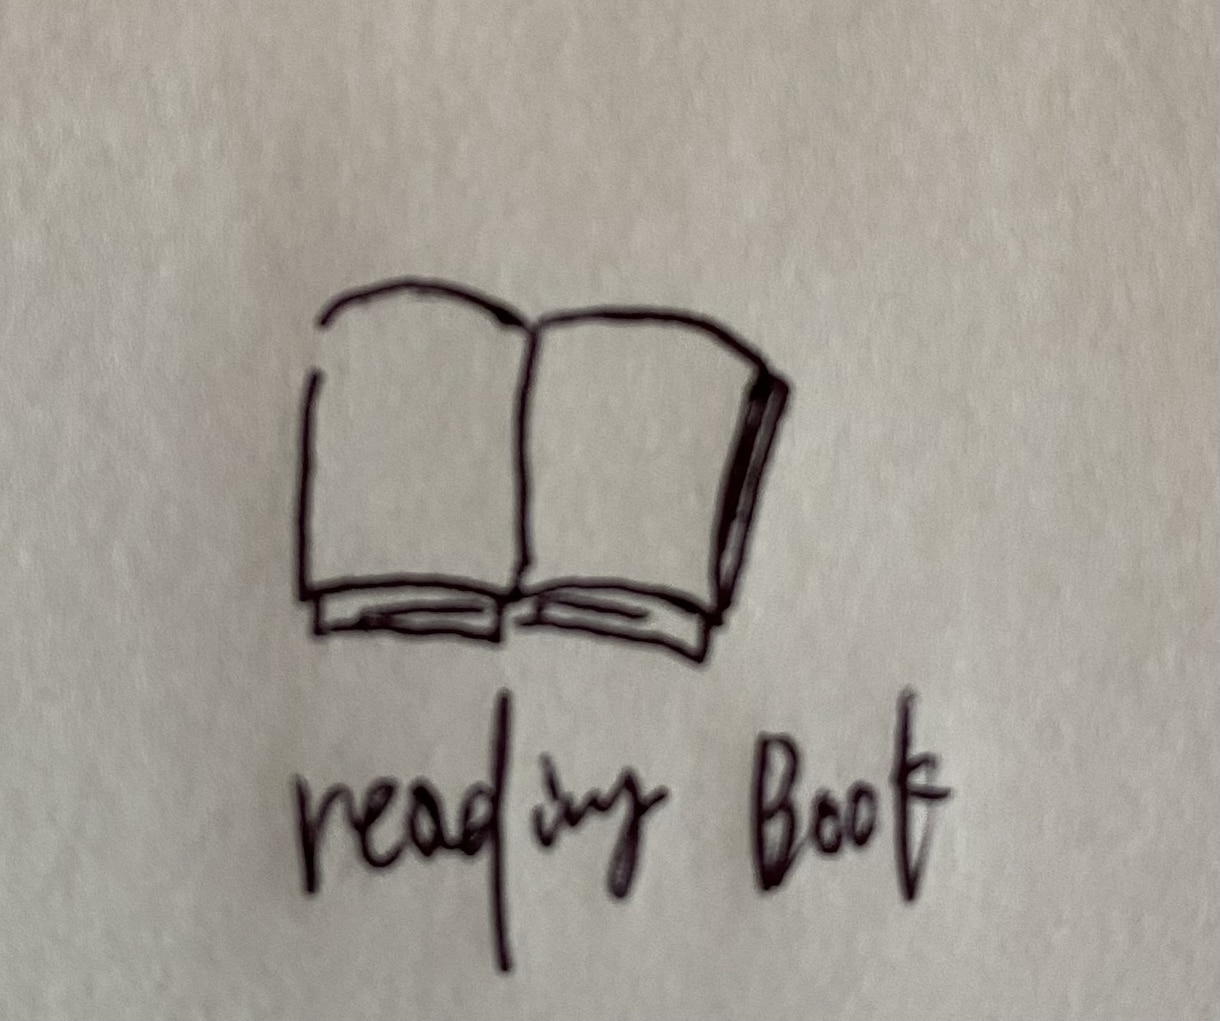 reading Book